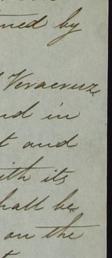 ned by
Veracruz
nd in
t and
ith its
hall be
on the